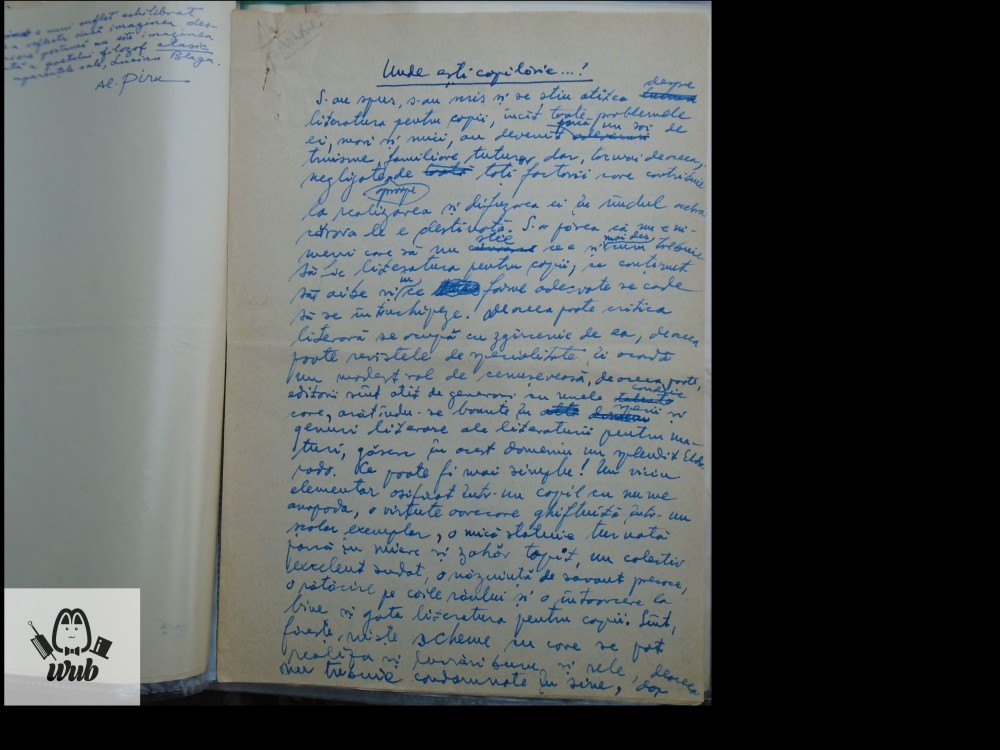 suflet echilibrat
a reflecta viață imaginea des-
postumă nu este imaginea
a poetului filozof clasic
aparențele sale, Lucian Blaga.
Al. Piru
Unde ești copilărie...!
despre
S-au spus, s-au scris și se știu atîtea
literatura pentru copii, încît toate problemele
ei, mari și mici, au devenit parcă un soi de
truisme, familiare tuturor, dar, tocmai de aceea,
neglijate de toată toți factorii care contribuie
aproape
la realizarea și difuzarea ei în rîndul
căreia le e destinată. S-a părea că nu e ni-
știe
mai des
meni care să nu ce e și cum trebuie
să fie literatura pentru copii, ce conținut
să aibe și în ce forme adecvate se cade
să se întruchipeze. De aceea poate critica
literară se ocupă cu zgîrcenie de ea, de aceea
poate revistele de specialitate îi acordă
un modest rol de cenușereasă, de aceea poate,
editorii sînt atît de generoși cu unele
care, arătîndu-se boante în alte specii și
genuri literare ale literaturii pentru ma-
turi, găsesc în acest domeniu un splendid Eldo-
rado. Ce poate fi mai simplu! Un viciu
elementar osificat într-un copil cu nume
anapoda, o virtute oarecare ghiftuită într-un
școlar exemplar, o mică statuie turnată
parcă în miere și zahăr topit, un colectiv
excelent sudat, o năzuință de savant precoce,
o rătăcire pe căile răului și o întoarcere la
bine și gata literatura pentru copii. Sînt,
firește, niște scheme în care se pot
realiza și lucrări bune, și rele, de aceea
nu trebuie condamnate în sine, dar
wub